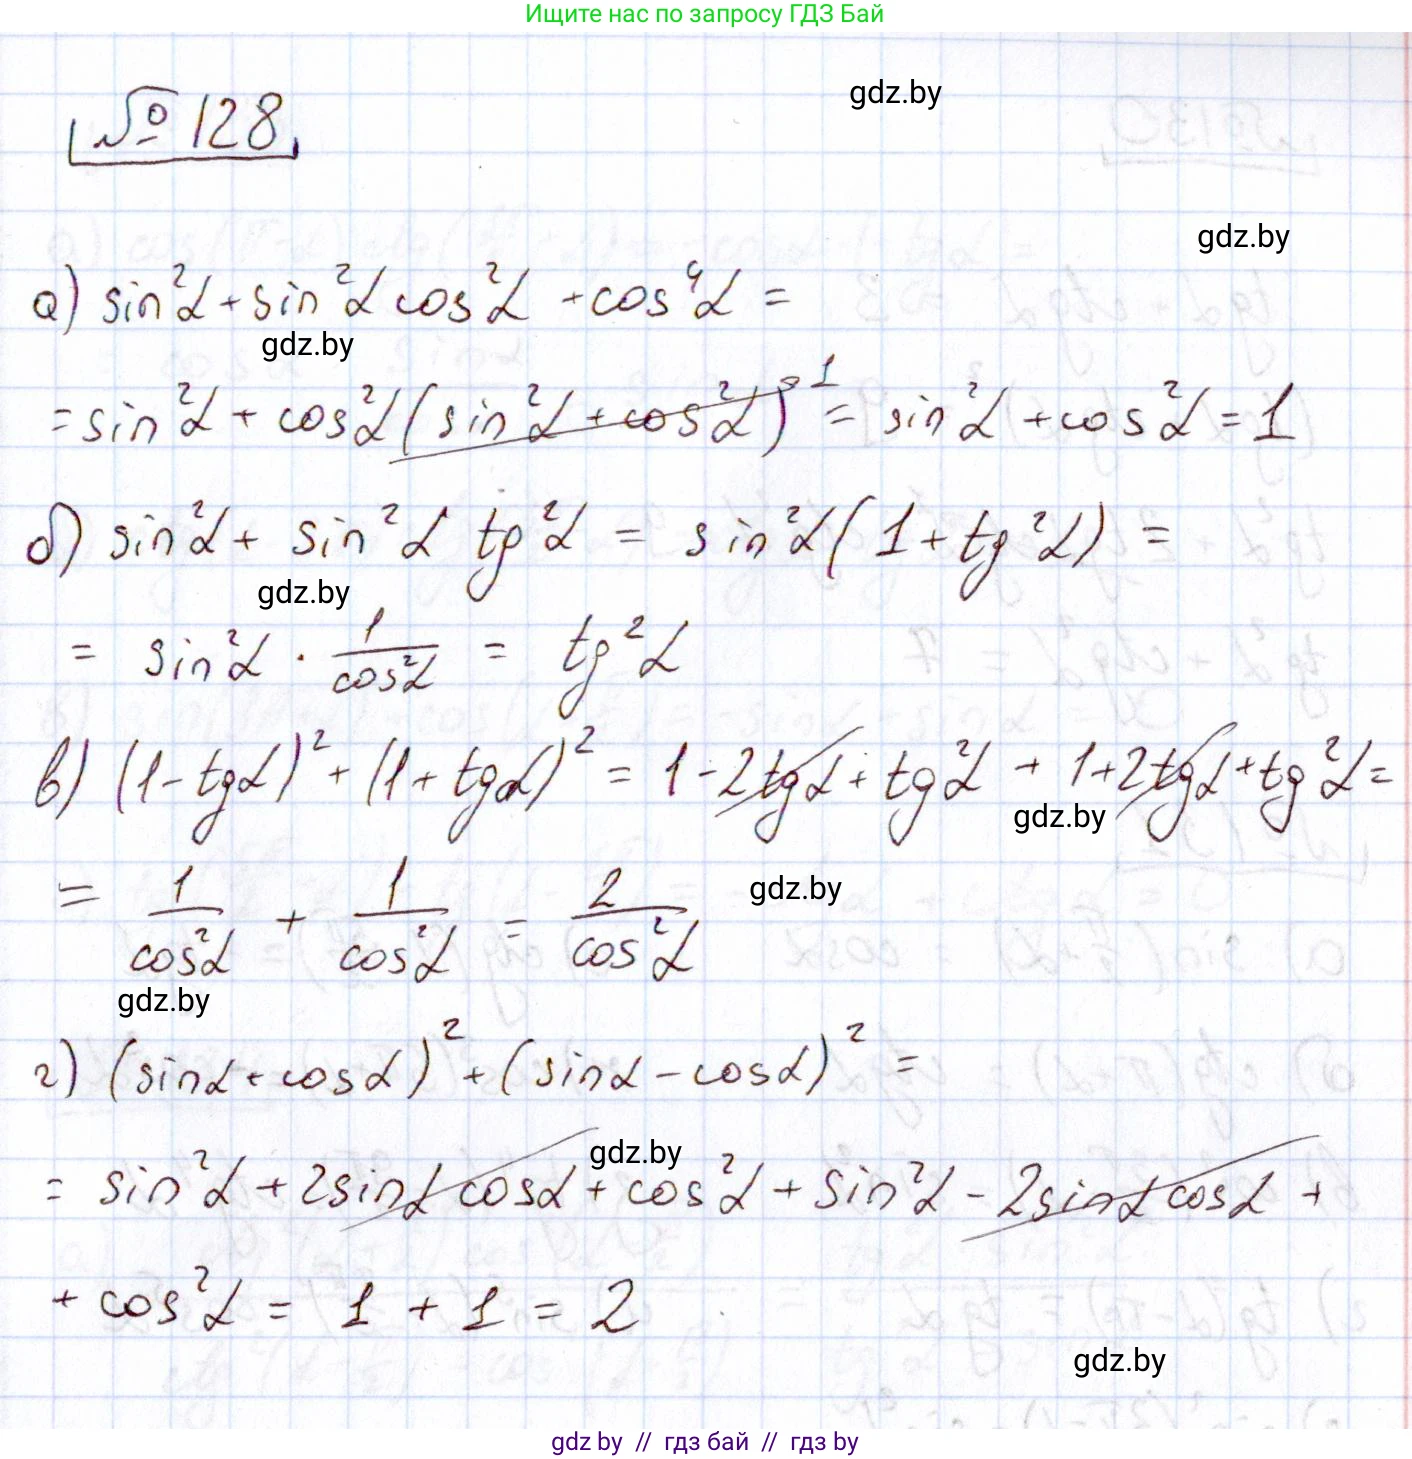 Ищите нас по запросу ГДЗ Бай
№ 128
gdz.by
gdz.by
а) sin²α + sin²α cos²α + cos⁴α =
gdz.by
= sin²α + cos²α (sin²α + cos²α)¹ = sin²α + cos²α = 1
б) sin²α + sin²α tg²α = sin²α (1 + tg²α) =
gdz.by
= sin²α · 1/cos²α = tg²α
в) (1 - tgα)² + (1 + tgα)² = 1 - 2tgα + tg²α + 1 + 2tgα + tg²α =
gdz.by
= 1/cos²α + 1/cos²α = 2/cos²α
gdz.by
gdz.by
г) (sinα + cosα)² + (sinα - cosα)² =
gdz.by
= sin²α + 2sinα cosα + cos²α + sin²α - 2sinα cosα +
+ cos²α = 1 + 1 = 2
gdz.by
gdz by // гдз бай // gdz by